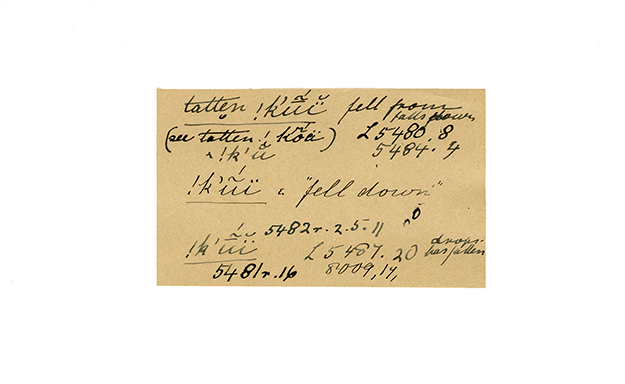 tatten !k'ũï fell from
falls down
(see tatten ! kõä) L 5480, 8
" !k'ŭ 5484. 4
!k'ṹï " "fell down"
5482r. 2. 5. 11
!k'ṹï L 5487. 20 drops.
has fallen
5481r. 16 8009, 17,